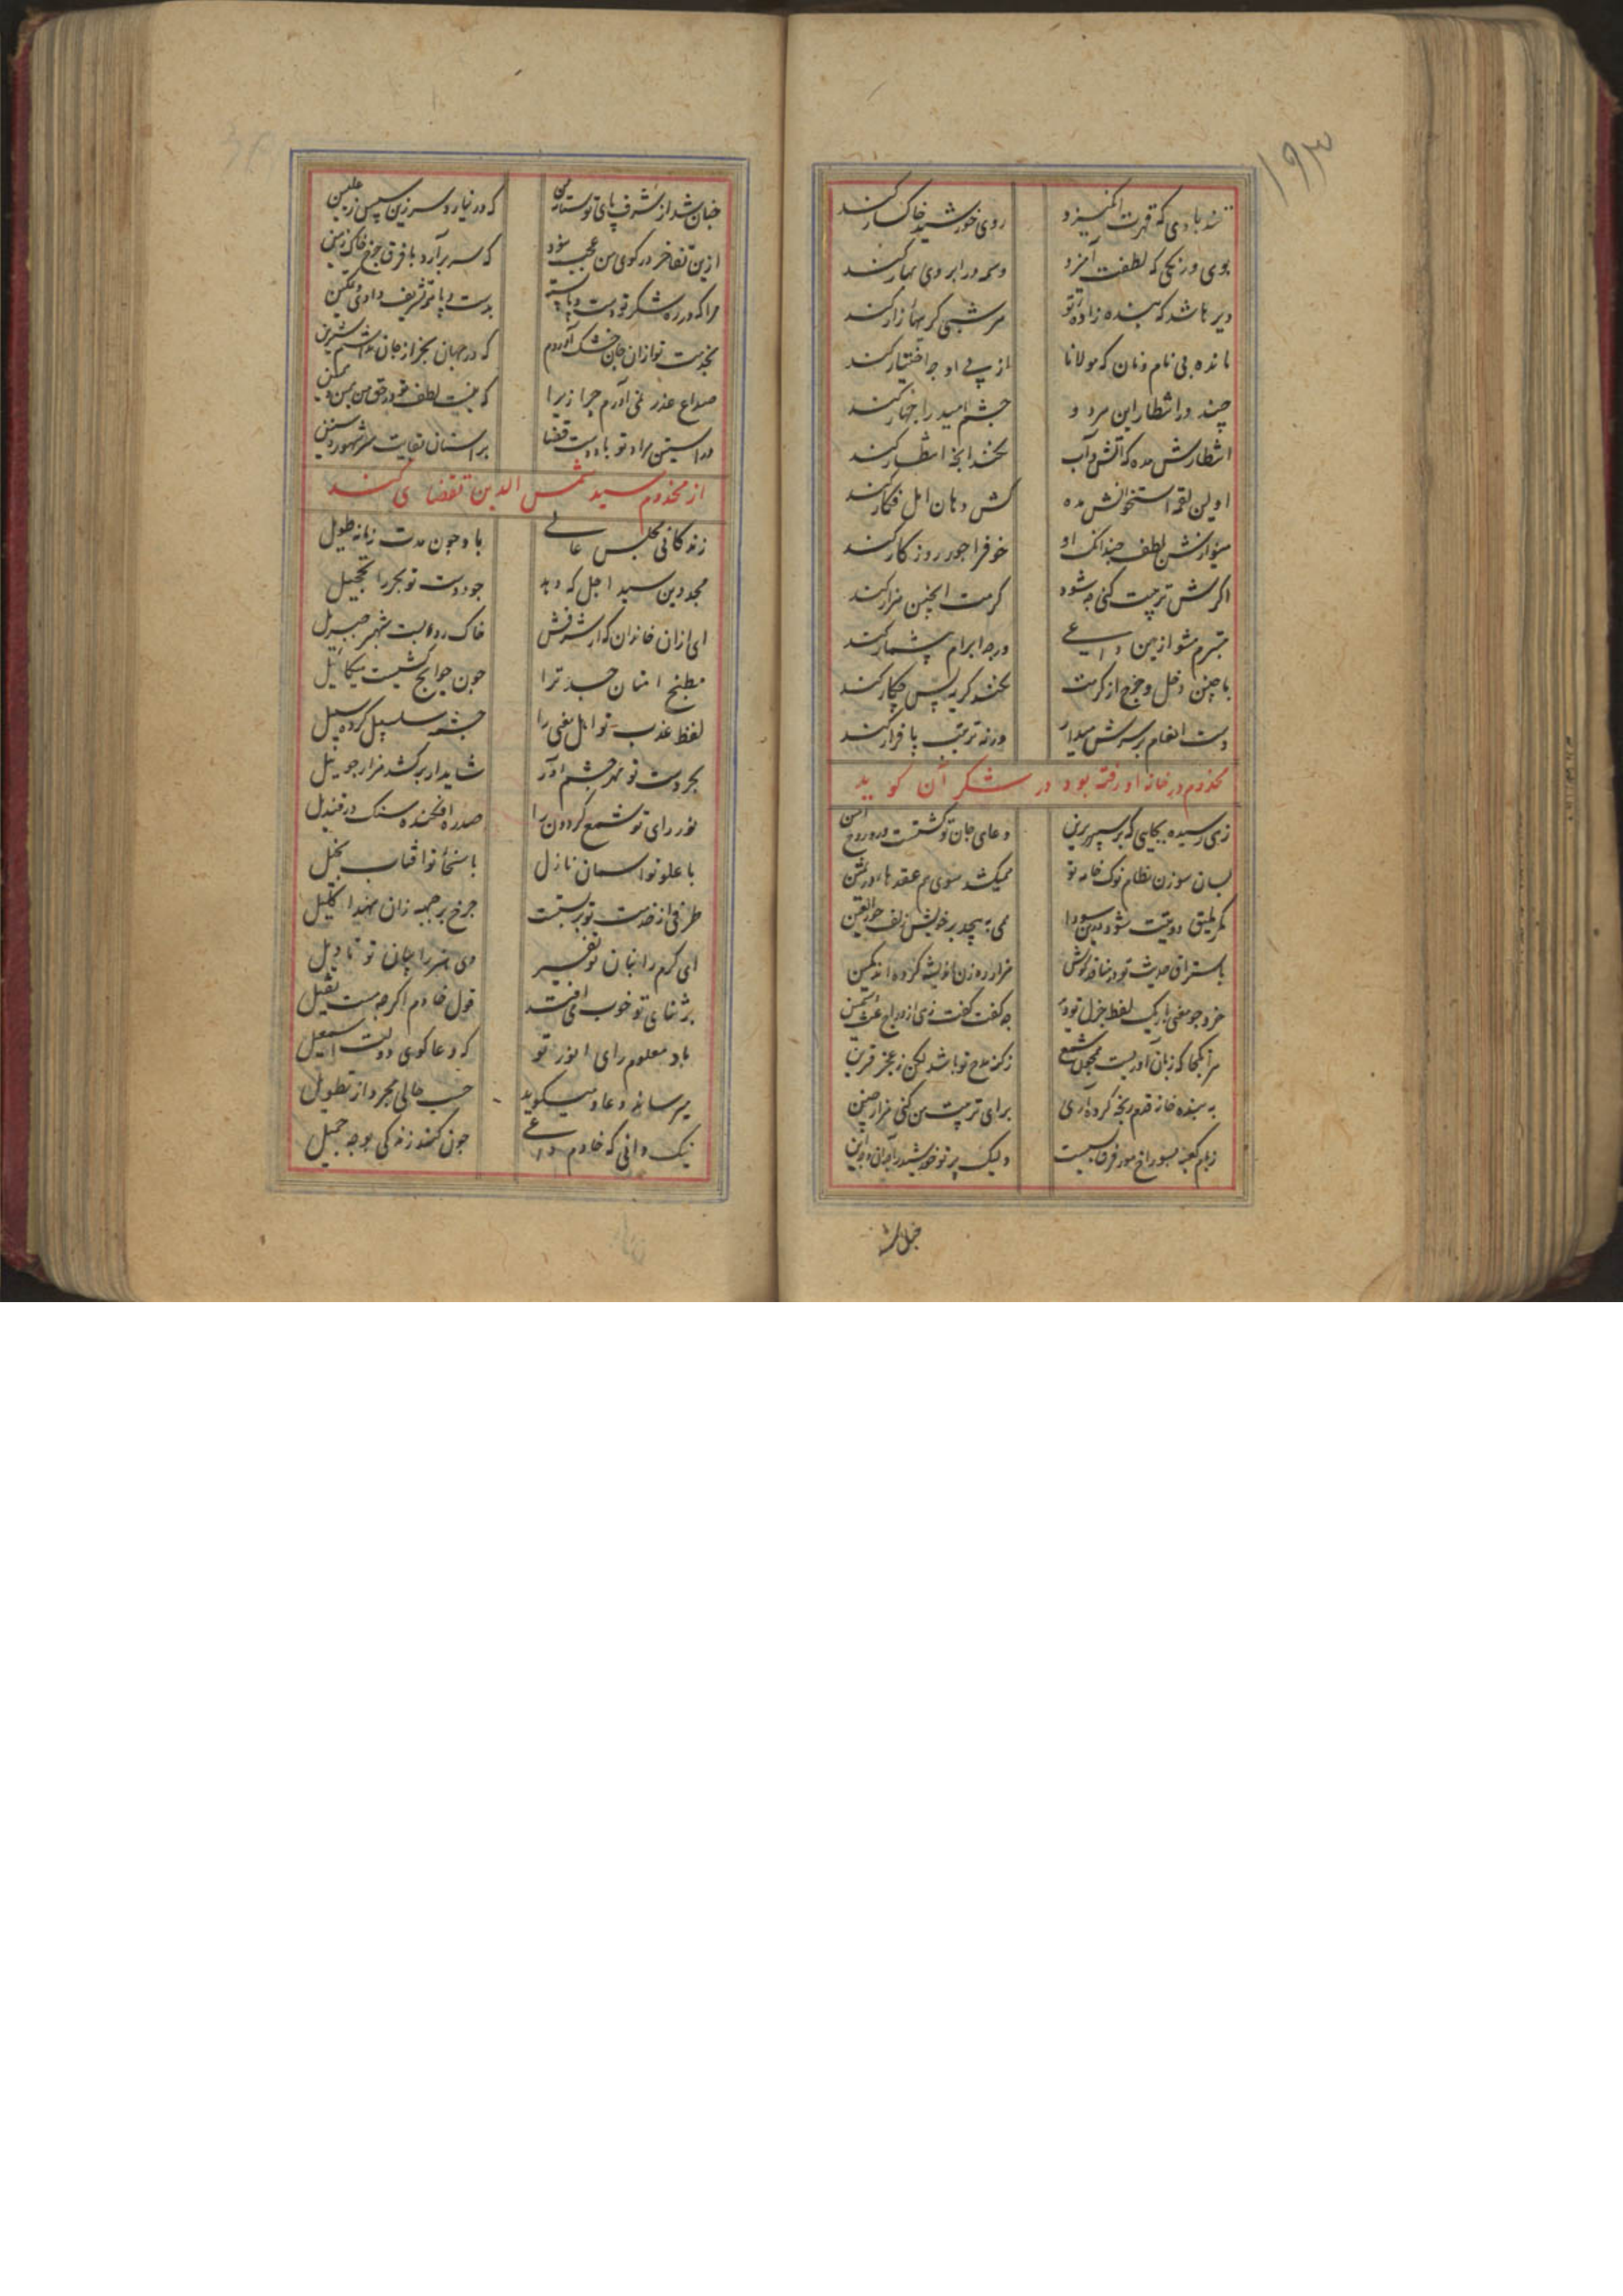 ۱۹۳
تند بادی که قهرت انگیزد روی خورشید خاکسار کند
بوی و رنگی که لطفت آمیزد وسمه در ابروی بهار کند
دیر باشد که بنده زاده تو هر شبی گریهاء زار کند
مانده بی نام و نان که مولانا از پی او چه اختیار کند
چند در انتظار این مرد و چشم امید را چهار کند
انتظارش مده که آتش و آب نکند آنچه انتظار کند
اولین لقمه استخوانش مده کش دهان امل فکار کند
بنوازش لطف چندانک او خو فرا جور روزگار کند
اگرش تربیت کنی چه شود کرمت اینچنین هزار کند
متبرم مشو ازین داعی ورچه ابرام بیشمار کند
با چنین دخل و خرج از کرمت نکند گریه پس چکار کند
دست انعام بر سرش میدار ورنه ترتیب با فرار کند
مخدوم در خانه او رفته بود در شکر آن کوید
زهی رسیده بجایی که بر سپهر برین دعای جان تو گشتست ورد روح امین
بسان سوزن نظام نوک خامه تو میکشد سوی هم عقدهاء در ثمین
مگر بلیق دویتت شود درین سودا همی بپیچد بر خویش زلف حور العین
باستراق حدیث تو در بناگوش هزار رهزن اندیشه کرده اند کمین
خرد چو معنی باریک لفظ جزل تو دید چه گفت گفت زهی ازدواج غث و سمین
مرا بجا که زبان آوریست همچون شمع زکنه مدح تو باشد لکن ز عجز قرین
به بنده خانه قدم رنجه کرده آری برای تربیت من کنی هزار چنین
زبام کعبه بسوراخ مور فرقا نیست ولیک پرتو خورشید را چه آن و چه این
چنان شد
چنان شد از شرف پای تو ستانه من که در نیارد سر زین سپس بعلیین
ازین تفاخر در کوی من عجب نبود که سر برآرد با فرق چرخ خاک زمین
مرا که در ره شکر تو دست و پا بسته بدست و پا تو تشریف دادی و تمکین
بخدمت تو ازان جان خشک آوردم که در جهان بجز از جان نداشتم شیرین
صداع عذر نمی آورم چرا زیرا که نیست لطف تو در حق من همین
در آستین مراد تو باد دست قضا بر آستان بقایت سر شهور و سنین
از مخدوم سید شمس الدین تقضای کند
زندکانی مجلس عالی باد چون مدت زمانه طویل
مجد دین سید اجل که دهد جود دست تو بحر را تخجیل
ای ازان خاندان که از شرفش خاک روبست شهپر جبریل
مطبخ امتنان جد ترا چون حوایج کشیست میکائیل
لفظ عذب تو اهل معنی را چشمه سلسبیل کرده سبیل
بحر دست تو هر چشم آور شاید ار برکشد هزار چو نیل
نور رای تو شمع گردون را صد ره افکنده سنک در قندیل
با علو تو آسمان نازل با سخاء تو آفتاب بخیل
طرفی از خدمت تو بربستست چرخ بر جبهه زان نهد اکلیل
ای کرم را بنان تو تفسیر وی هنر را بیان تو تاویل
بر ثنای تو خوب می افتد قول خادم اکرچه هست ثقیل
باد معلوم رای انور تو که دعاکوی دولت اسمعیل
میرساند دعا و میکوید حسب حالی مجرد از تطویل
نیک دانی که خادم داعی چون کند زندکی بوجه جمیل